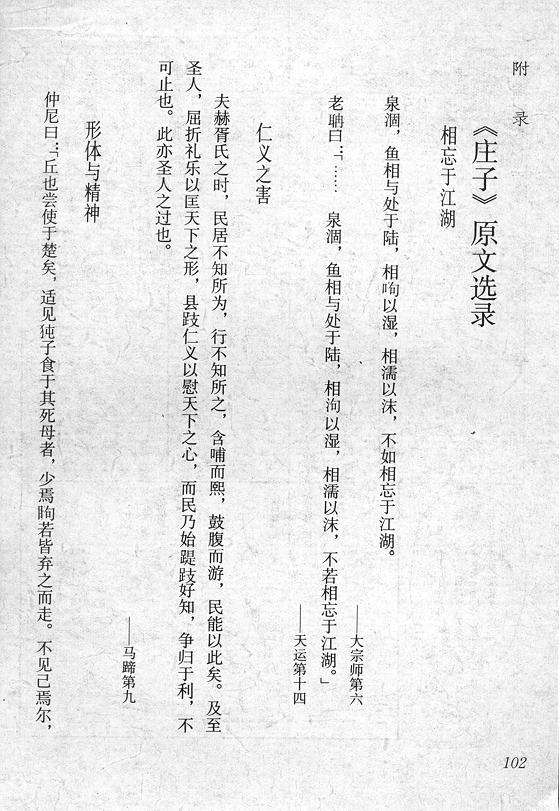 附录
《庄子》原文选录
相忘于江湖
泉涸，鱼相与处于陆，相呴以湿，相濡以沫，不如相忘于江湖。
——大宗师第六
老聃曰：「……　泉涸，鱼相与处于陆，相泃以湿，相濡以沫，不若相忘于江湖。」
——天运第十四
仁义之害
夫赫胥氏之时，民居不知所为，行不知所之，含哺而熙，鼓腹而游，民能以此矣。及至
圣人，屈折礼乐以匡天下之形，县跂仁义以慰天下之心，而民乃始踶跂好知，争归于利，不
可止也。此亦圣人之过也。
——马蹄第九
形体与精神
仲尼曰：「丘也尝使于楚矣，适见㹠子食于其死母者，少焉眴若皆弃之而走。不见己焉尔，
102